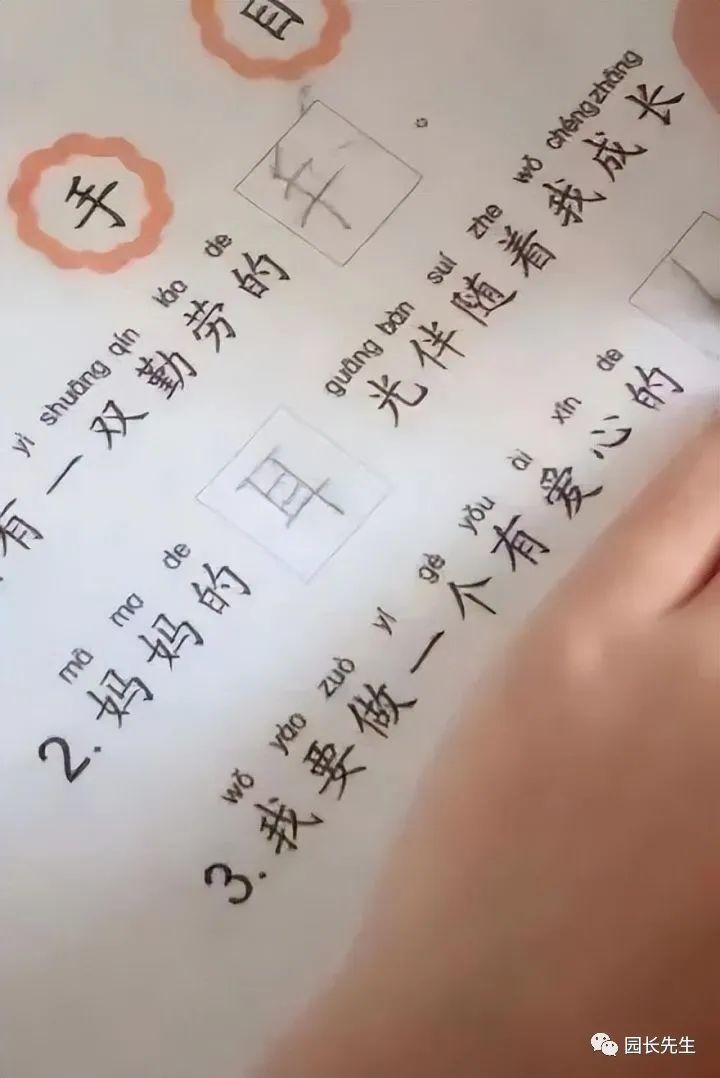 目
手
yì shuāng qín láo de
有一双勤劳的手。
mā ma de guāng bàn suí zhe wǒ chéng zhǎng
2. 妈妈的耳光伴随着我成长
wǒ yào zuò yí gè yǒu ài xīn de
3. 我要做一个有爱心的
园长先生